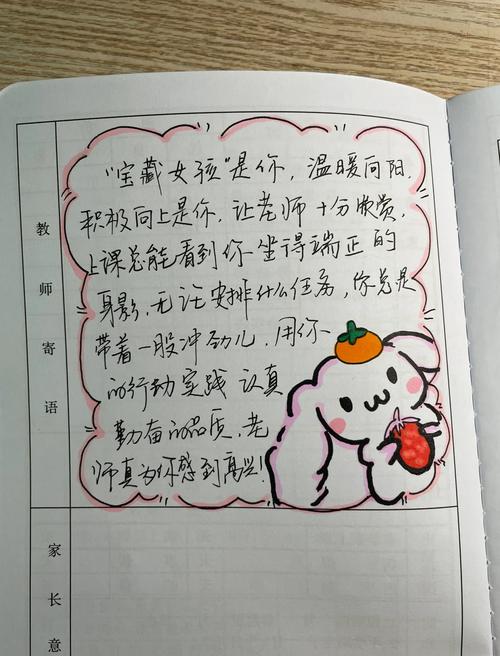 教师寄语
"宝藏女孩"是你，温暖向阳，
积极向上是你，让老师十分欣赏，
上课总能看到你坐得端正的
身影，无论安排什么任务，你总是
带着一股冲劲儿，用你
的行动实践认真
勤奋的品质，老
师真为你感到高兴！
家长意